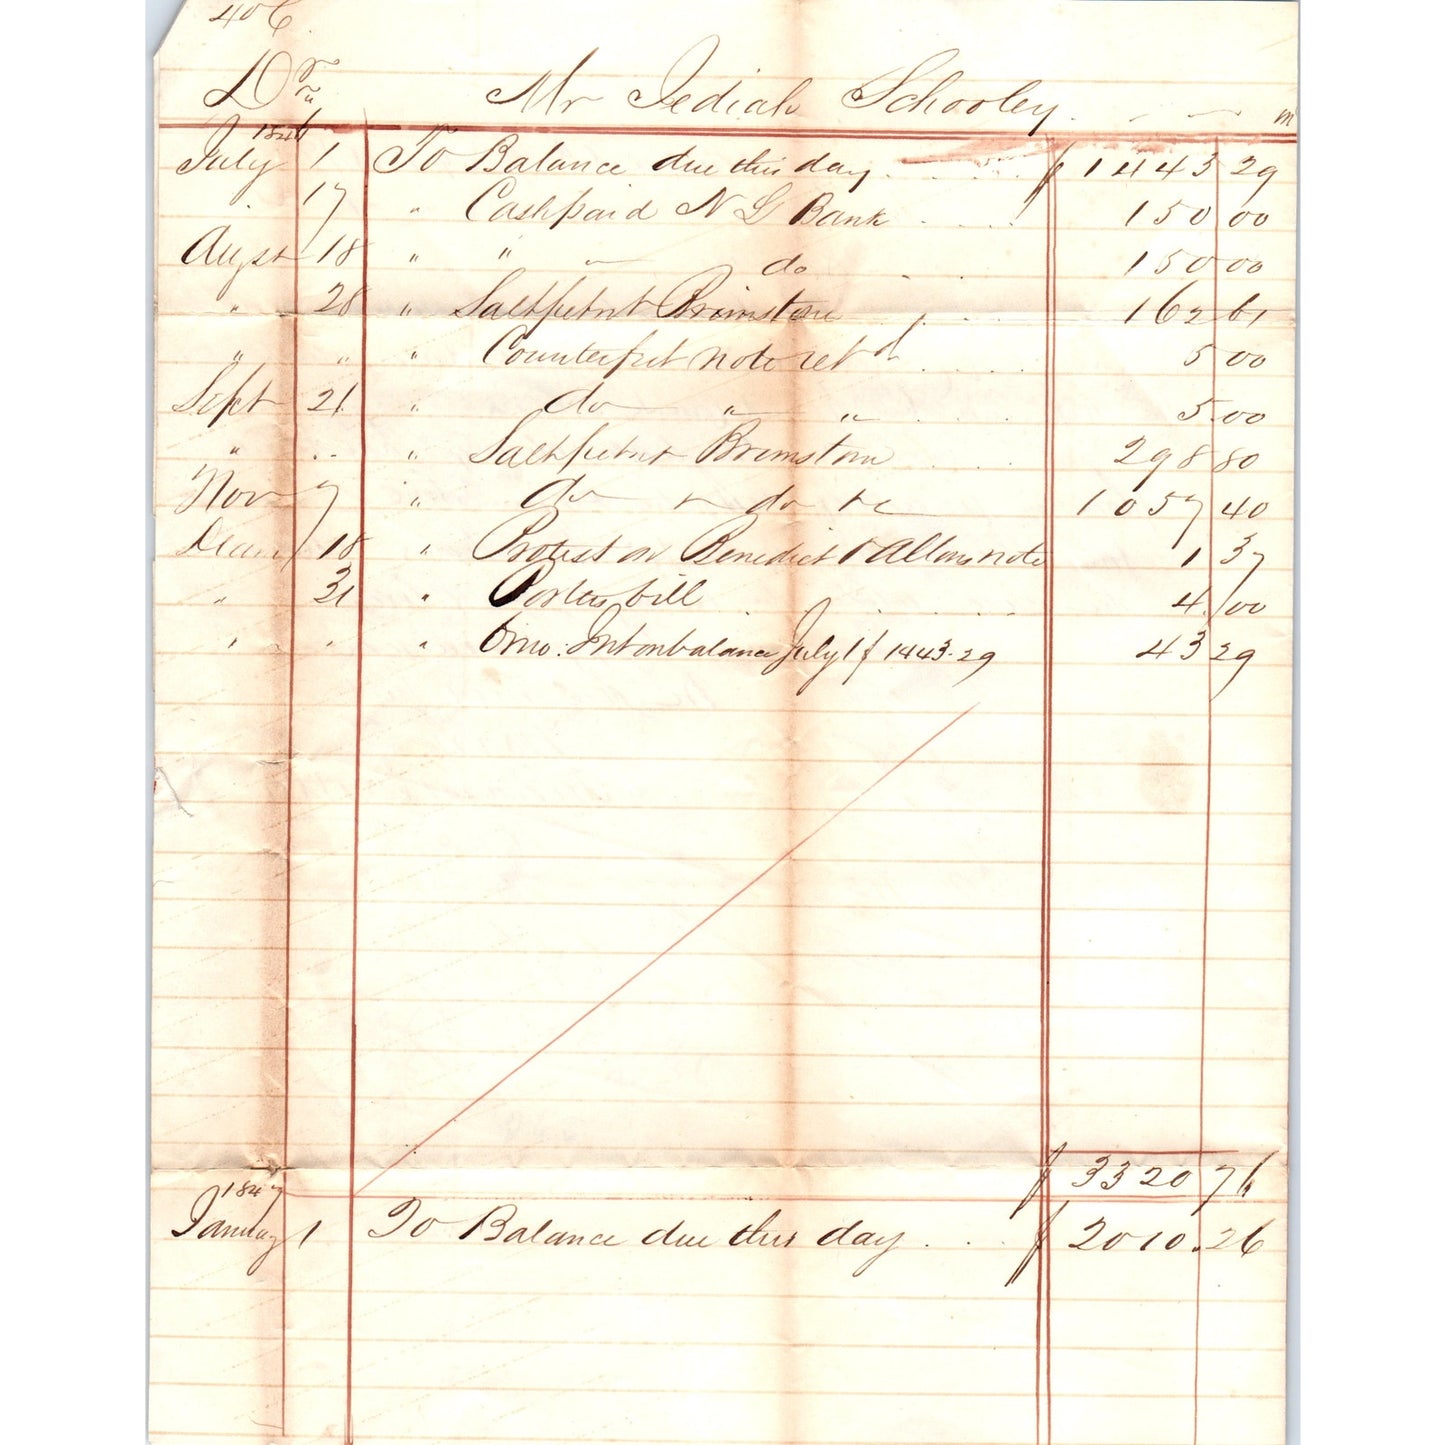 406
Dr
Mr Jediah Schooley. - - - m
1846
July 1 To Balance due this day $ 1443 29
" 17 " Cash paid N G Bank 150 00
Augst 18 " " " do 150 00
" 28 " Saltpetre & Brimstone 162 61
" " " Counterfeit note retd 5 00
Sept 21 " do " " 5.00
" .. " Saltpetre & Brimstone 298 80
Nov 7 " do & do &c 1057 40
Decem 18 " Protest on Benedict & Allens note 1 37
" 31 " Porters bill 4.00
" " " 6 mo. Int on balance July 1 $ 1443.29 43 29
$ 3320 76
1847
January 1 To Balance due this day $ 2010.26